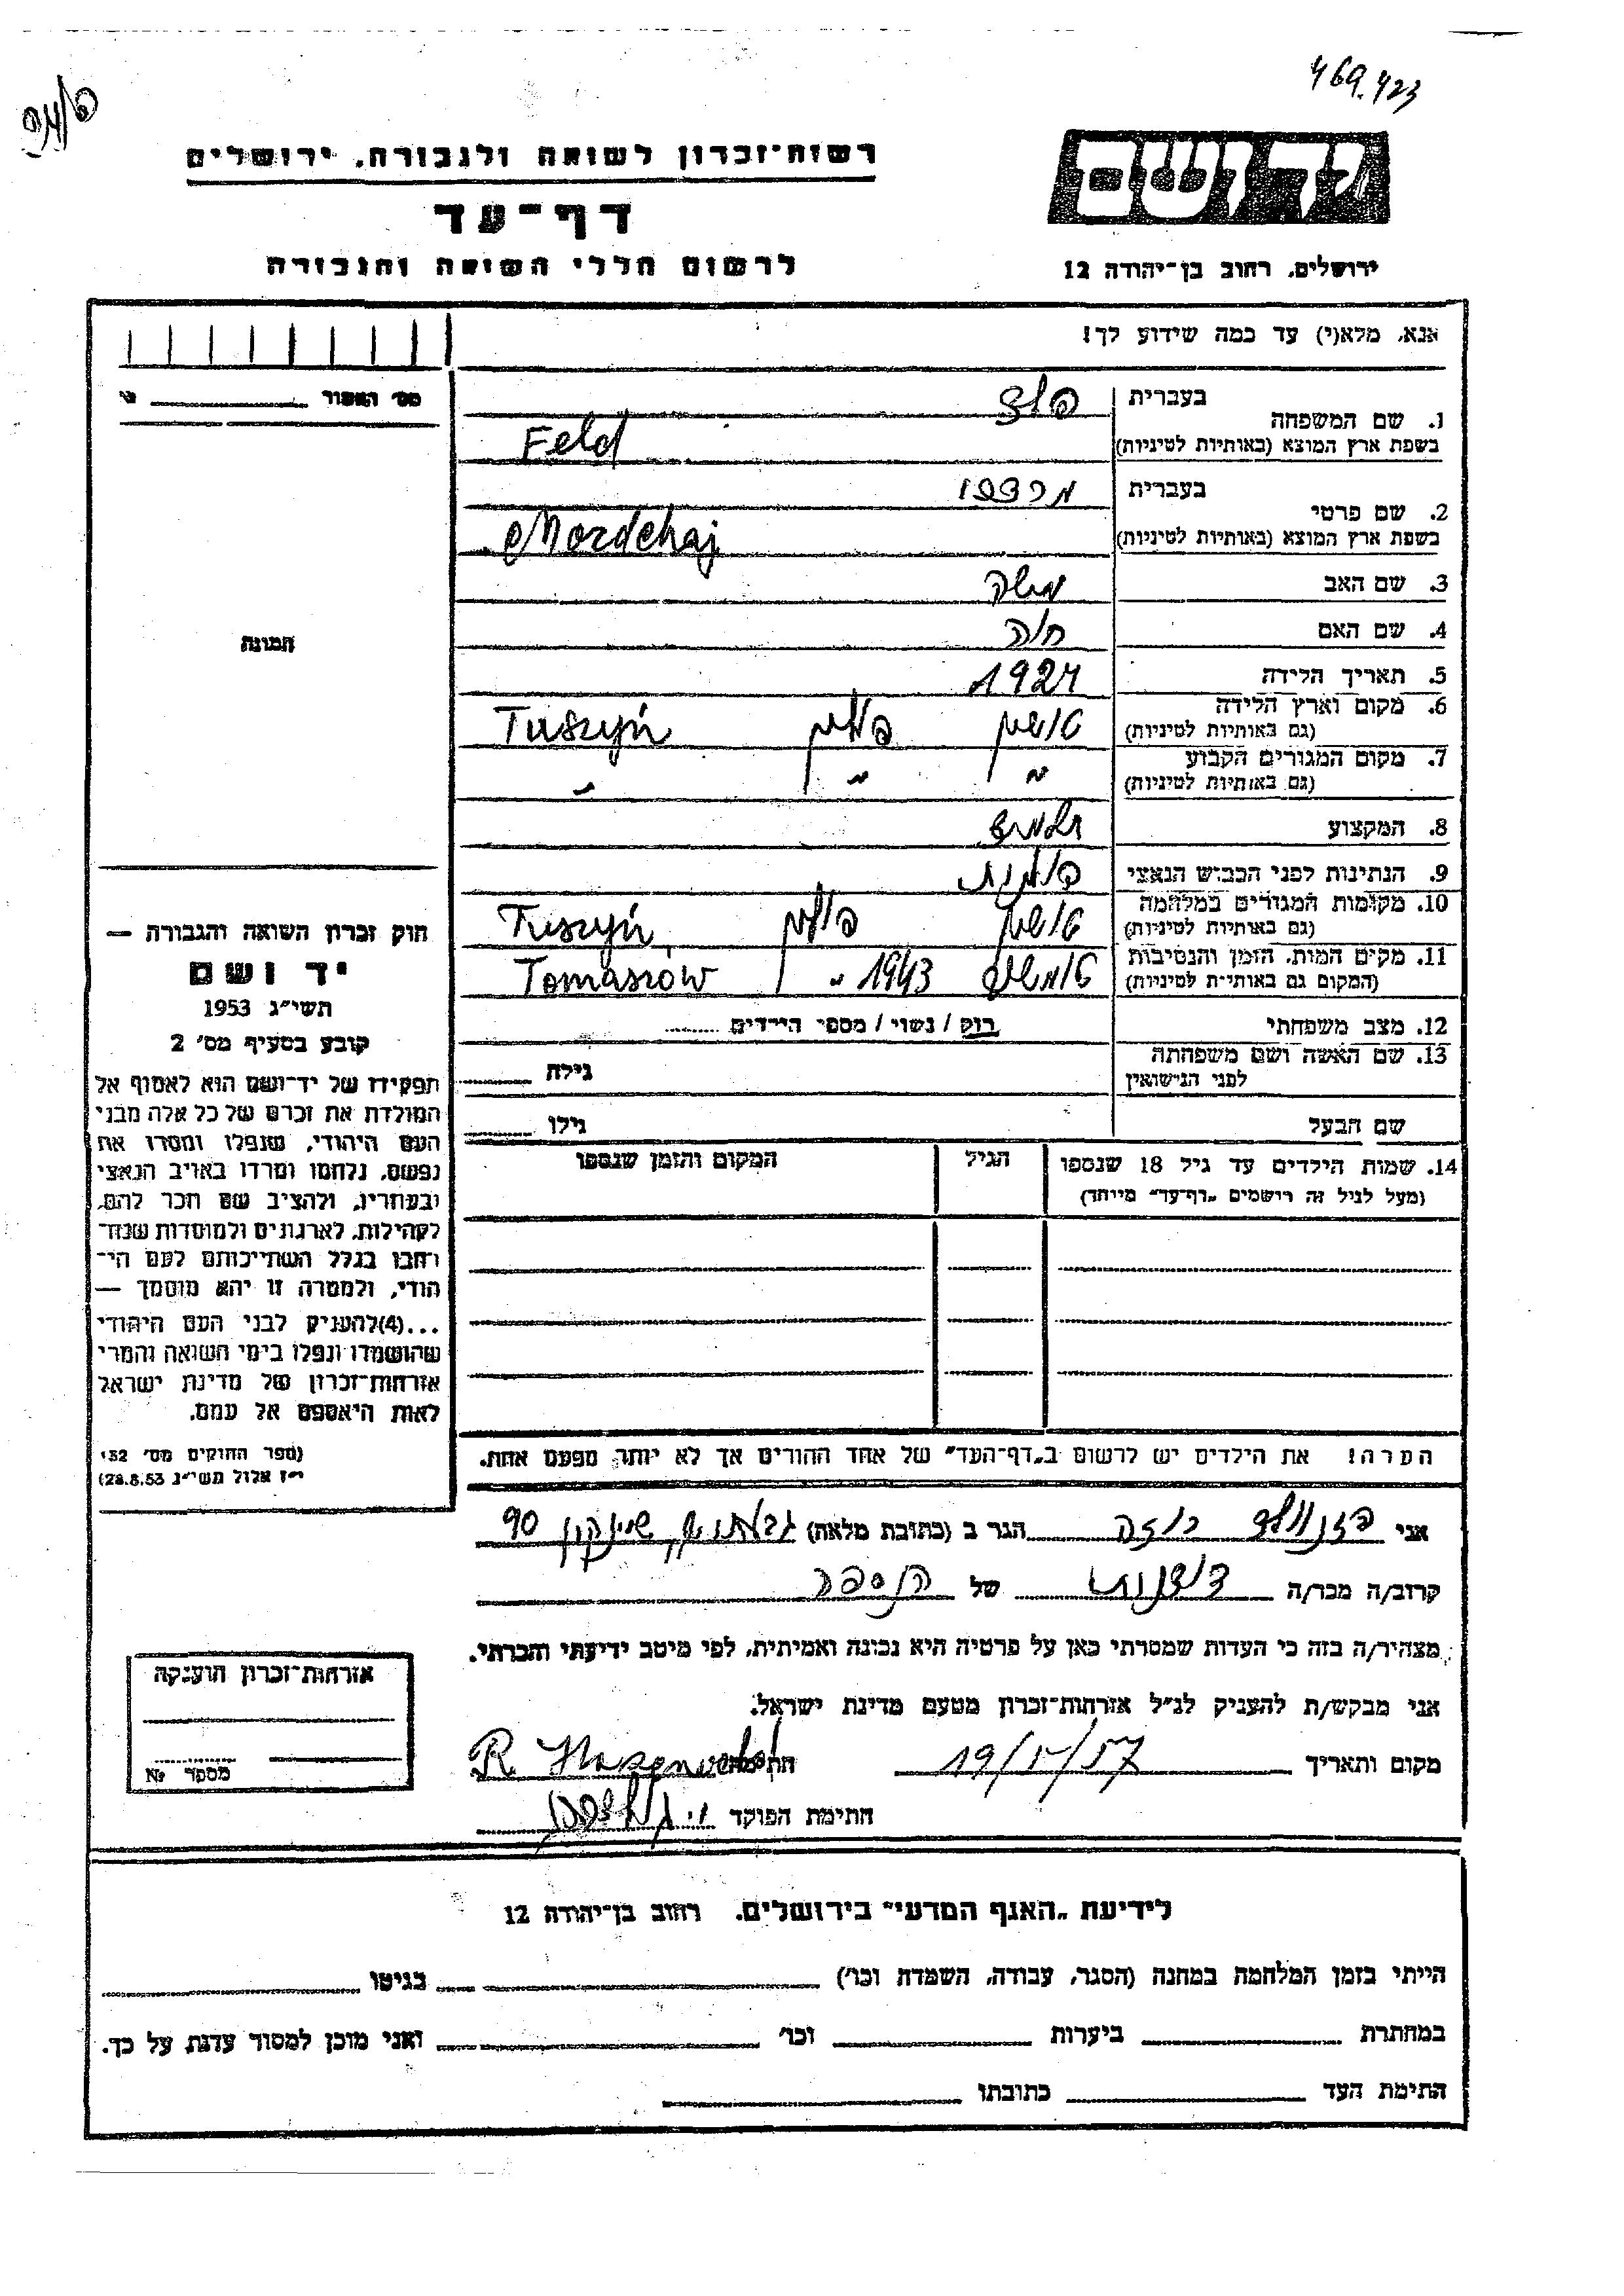 469.423
רשות־זכרון לשואה ולגבורה, ירושלים
דף־עד
לרשום חללי השואה והגבורה
יד ושם
ירושלים, רחוב בן־יהודה 12
אנא, מלא(י) עד כמה שידוע לך!
מס׳ האשור
1. שם המשפחה
בעברית פלד
בשפת ארץ המוצא (באותיות לטיניות) Feld
2. שם פרטי
בעברית מרדכי
בשפת ארץ המוצא (באותיות לטיניות) Mordchaj
3. שם האב משה
4. שם האם חוה
5. תאריך הלידה 1924
6. מקום וארץ הלידה (גם באותיות לטיניות) טושין פולין Tuszyń
7. מקום המגורים הקבוע (גם באותיות לטיניות) " " "
8. המקצוע תלמיד
9. הנתינות לפני הכבוש הנאצי פולנית
10. מקומות המגורים במלחמה (גם באותיות לטיניות) טושין פולין Tuszyń,
11. מקום המות, הזמן והנסיבות (המקום גם באותיות לטיניות) טומשוב 1943 " Tomaszów
12. מצב משפחתי רוק / נשוי / מספר הילדים
13. שם האשה ושם משפחתה לפני הנישואין גילה
שם הבעל גילו
14. שמות הילדים עד גיל 18 שנספו (מעל לגיל זה רושמים „דף־עד״ מיוחד) הגיל המקום והזמן שנספו
הערה! את הילדים יש לרשום ב„דף־העד״ של אחד ההורים אך לא יותר מפעם אחת.
התמונה
חוק זכרון השואה והגבורה —
יד ושם
תשי״ג 1953
קובע בסעיף מס׳ 2
תפקידו של יד־ושם הוא לאסוף אל
המולדת את זכרם של כל אלה מבני
העם היהודי, שנפלו ומסרו את
נפשם, נלחמו ומרדו באויב הנאצי
ובעוזריו, ולהציב שם וזכר להם,
לקהילות, לארגונים ולמוסדות שנח־
רבו בגלל השתייכותם לעם הי־
הודי, ולמטרה זו יהא מוסמך —
...(4)להעניק לבני העם היהודי
שהושמדו ונפלו בימי השואה והמרי
אזרחות־זכרון של מדינת ישראל
לאות היאספם אל עמם.
(ספר החוקים מס׳ 132
י״ז אלול תשי״ג 28.8.53)
אני הזנולד רוזה הגר ב (כתובת מלאה) גבעתיים, שינקין 90
קרוב/ה מכר/ה של הנספה
מצהיר/ה בזה כי העדות שמסרתי כאן על פרטיה היא נכונה ואמיתית, לפי מיטב ידיעתי והכרתי.
אני מבקש/ת להעניק לנ״ל אזרחות־זכרון מטעם מדינת ישראל.
מקום ותאריך 19/V/57 חתימה R Hasenwald
חתימת הפוקד
אזרחות־זכרון הוענקה
מספר №
לידיעת „האגף המדעי״ בירושלים, רחוב בן־יהודה 12
הייתי בזמן המלחמה במחנה (הסגר, עבודה, השמדה וכו׳) בגיטו
במחתרת ביערות וכו׳ ואני מוכן למסור עדות על כך.
חתימת העד כתובתו